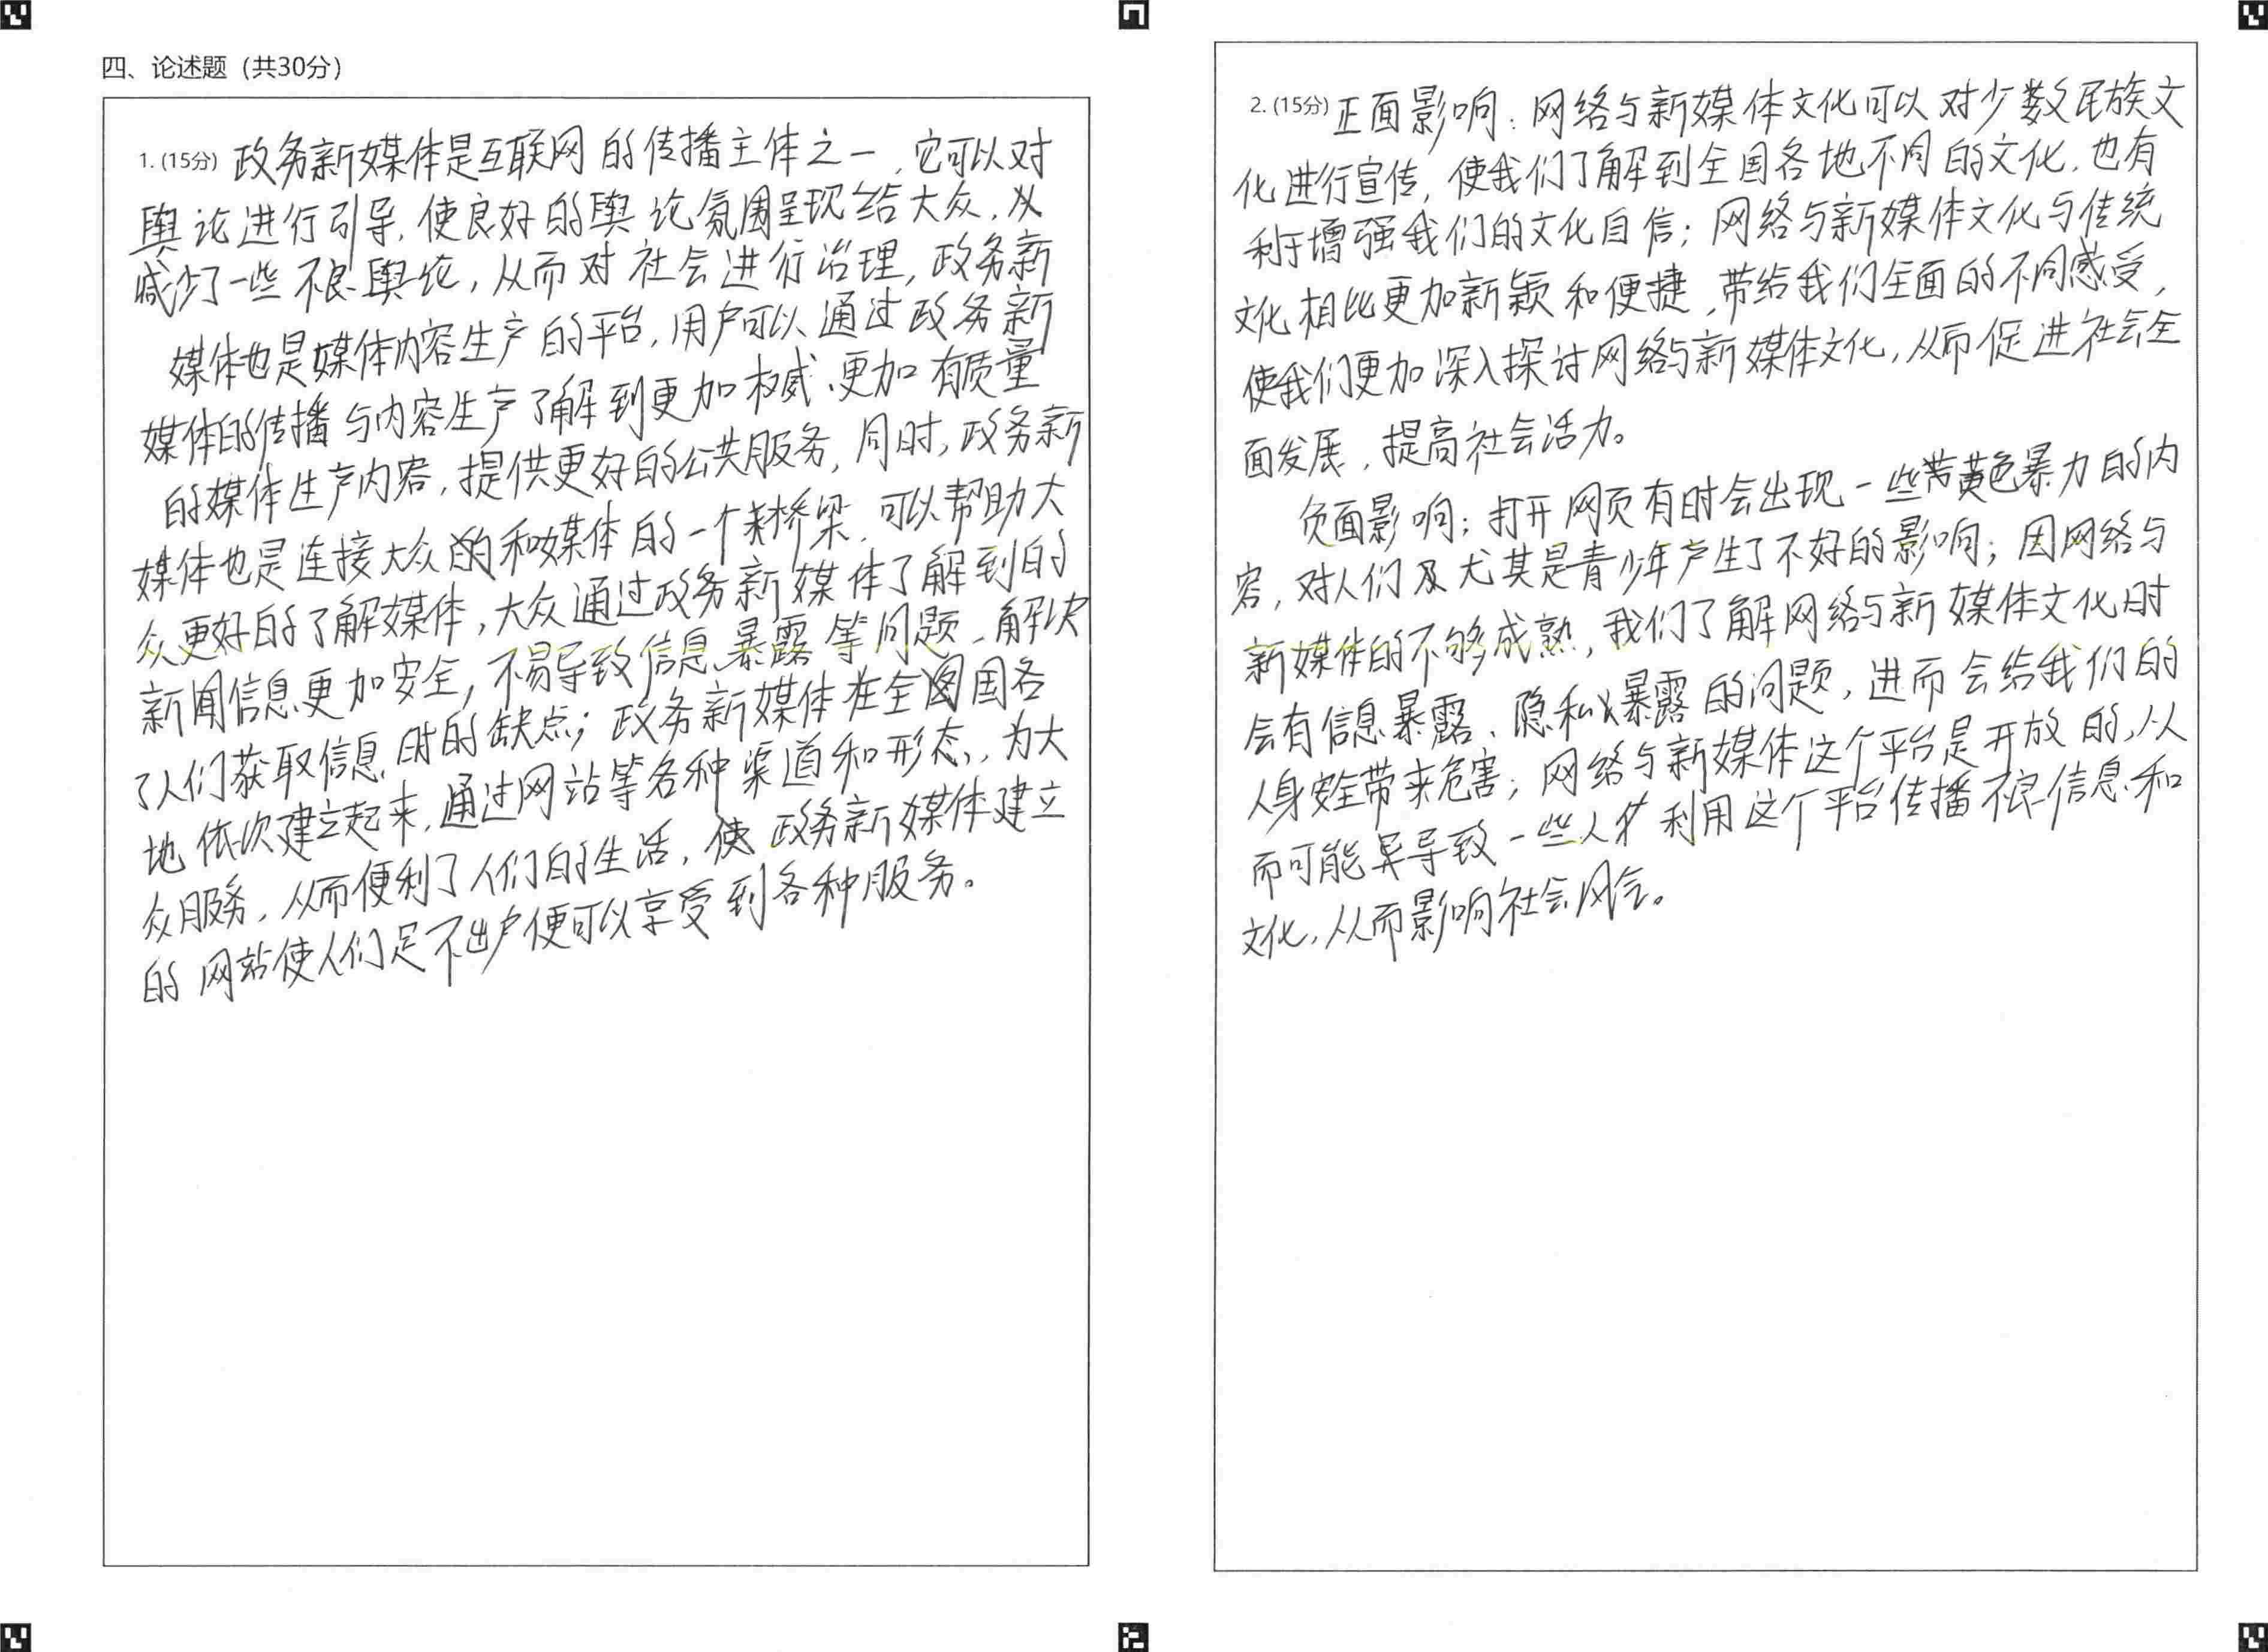 四、论述题（共30分）
1. (15分) 政务新媒体是互联网的传播主体之一，它可以对
舆论进行引导，使良好的舆论氛围呈现给大众，从
减少了一些不良舆论，从而对社会进行治理，政务新
媒体也是媒体内容生产的平台，用户可以通过政务新
媒体的传播与内容生产了解到更加权威、更加有质量
的媒体生产内容，提供更好的公共服务，同时，政务新
媒体也是连接大众和媒体的一个桥梁，可以帮助大
众更好的了解媒体，大众通过政务新媒体了解到的
新闻信息更加安全，不易导致信息暴露等问题，解决
了人们获取信息时的缺点；政务新媒体在全国各
地依次建立起来，通过网站等各种渠道和形态，为大
众服务，从而便利了人们的生活，使政务新媒体建立
的网站使人们足不出户便可以享受到各种服务。
2. (15分) 正面影响：网络与新媒体文化可以对少数民族文
化进行宣传，使我们了解到全国各地不同的文化，也有
利于增强我们的文化自信；网络与新媒体文化与传统
文化相比更加新颖和便捷，带给我们全面的不同感受，
使我们更加深入探讨网络与新媒体文化，从而促进社会全
面发展，提高社会活力。
负面影响：打开网页有时会出现一些带黄色暴力的内
容，对人们及尤其是青少年产生了不好的影响；因网络与
新媒体的不够成熟，我们了解网络与新媒体文化时
会有信息暴露、隐私暴露的问题，进而会给我们的
人身安全带来危害；网络与新媒体这个平台是开放的，从
而可能导致一些人利用这个平台传播不良信息和
文化，从而影响社会风气。